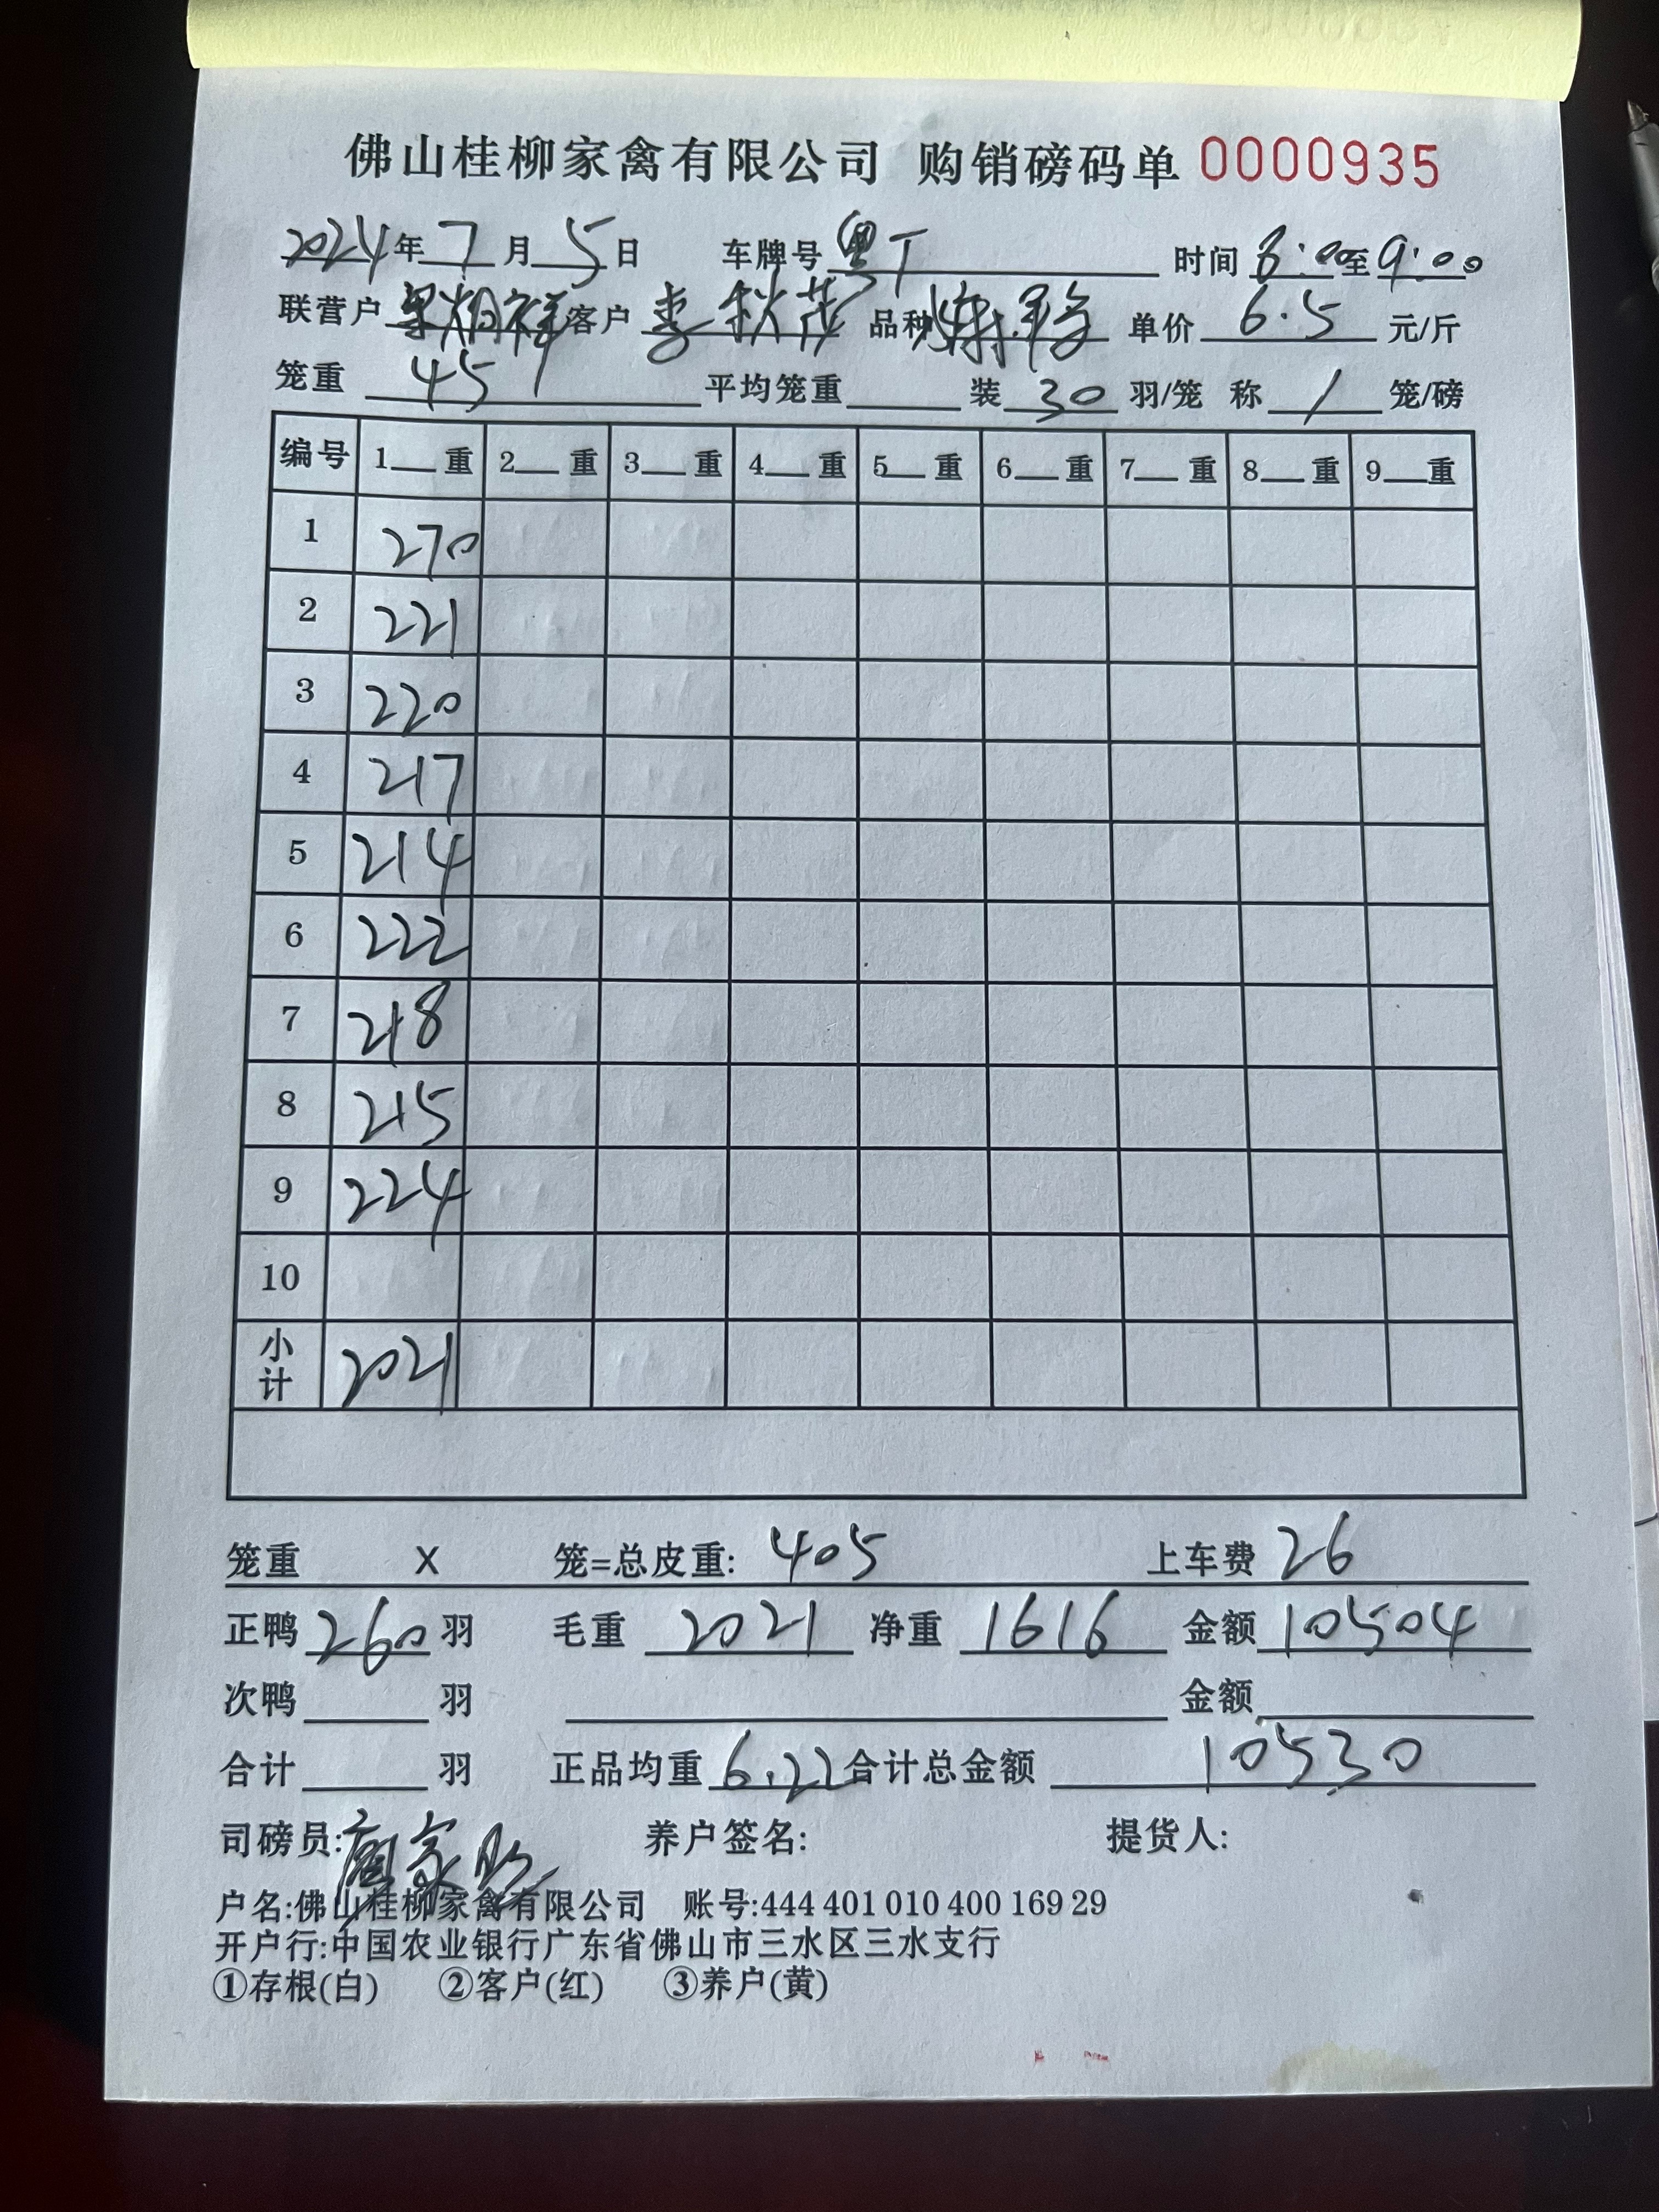 佛山桂柳家禽有限公司 购销磅码单 0000935
2024年7月5日 车牌号 粤T 时间 8:00至9:00
联营户 客户 李秋 品种 单价 6.5 元/斤
笼重 45 平均笼重 装 30 羽/笼 称 1 笼/磅
编号 1 重 2 重 3 重 4 重 5 重 6 重 7 重 8 重 9 重
1 270
2 221
3 220
4 217
5 214
6 222
7 218
8 215
9 224
10
小计 2021
笼重 X 笼=总皮重: 405 上车费 26
正鸭 260 羽 毛重 2021 净重 1616 金额 10504
次鸭 羽 金额
合计 羽 正品均重 6.22 合计总金额 10530
司磅员: 养户签名: 提货人:
户名:佛山桂柳家禽有限公司 账号:444 401 010 400 169 29
开户行:中国农业银行广东省佛山市三水区三水支行
①存根(白) ②客户(红) ③养户(黄)